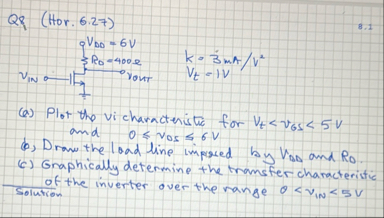 Q8 (Hor. 6.27)
8.1
VDD = 6V
RD = 400Ω
VOUT
VIN
k = 3 mA/V²
Vt = 1V
(a) Plot the vi characteristic for Vt < VGS < 5V
and 0 ≤ VDS ≤ 6V
(b) Draw the load line imposed by VDD and RD.
(c) Graphically determine the transfer characteristic
of the inverter over the range 0 < VIN < 5V
Solution